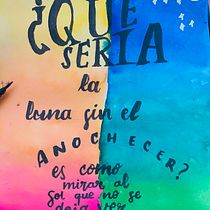 ¿QUÉ
SERIA
la
luna sin el
ANOCHECER?
es como
mirar al
sol que no se
deja ver